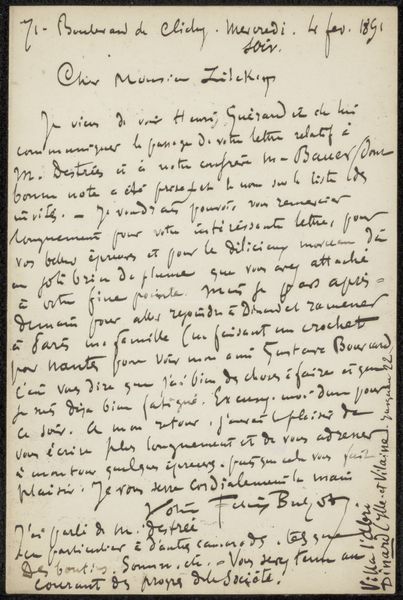 71 - Boulevard de Clichy - Mercredi - 4 fev. 1891
soir.
Cher Monsieur Zilcken
Je viens de voir Henri Guérard et de lui
communiquer le passage de votre lettre relatif à
M. Destrée et à notre confrère M. Bauer, dont
bonne note a été prise pour le nom sur la liste des
invités. - Je voudrais pouvoir vous remercier
longuement pour votre intéressante lettre, pour
vos belles épreuves et pour le délicieux morceau dû
au joli brin de plume que vous avez attaché
à votre fine pointe. Mais je pars après-
demain pour aller rejoindre à Dinard et ramener
à Paris ma famille (en faisant un crochet
par Nantes pour voir mon ami Gustave Bourcard
c'est vous dire que j'ai bien des choses à faire et que
je suis déjà bien fatigué. Excusez-moi donc pour
ce soir. A mon retour, j'aurai plaisir de
vous écrire plus longuement et de vous adresser
à mon tour quelques épreuves puisque cela vous fait
plaisir. Je vous serre cordialement la main
Votre Félix Buhot
J'ai parlé de M. Destrée
en particulier à d'autres camarades, tels que
Des boutin, Somm, etc. - Vous serez tenu au
courant des progrès de la Société.
Villa l'Abri
Dinard Ille-et-Vilaine